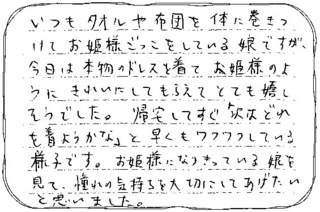 いつもタオルや布団を体に巻きつ
けてお姫様ごっこをしている娘ですが、
今日は本物のドレスを着てお姫様のよ
うにきれいにしてもらえてとても嬉し
そうでした。帰宅してすぐ「次はどれ
を着ようかな」と早くもワクワクしている
様子です。お姫様になりきっている娘を
見て、憧れの気持ちを大切にしてあげたい
と思いました。